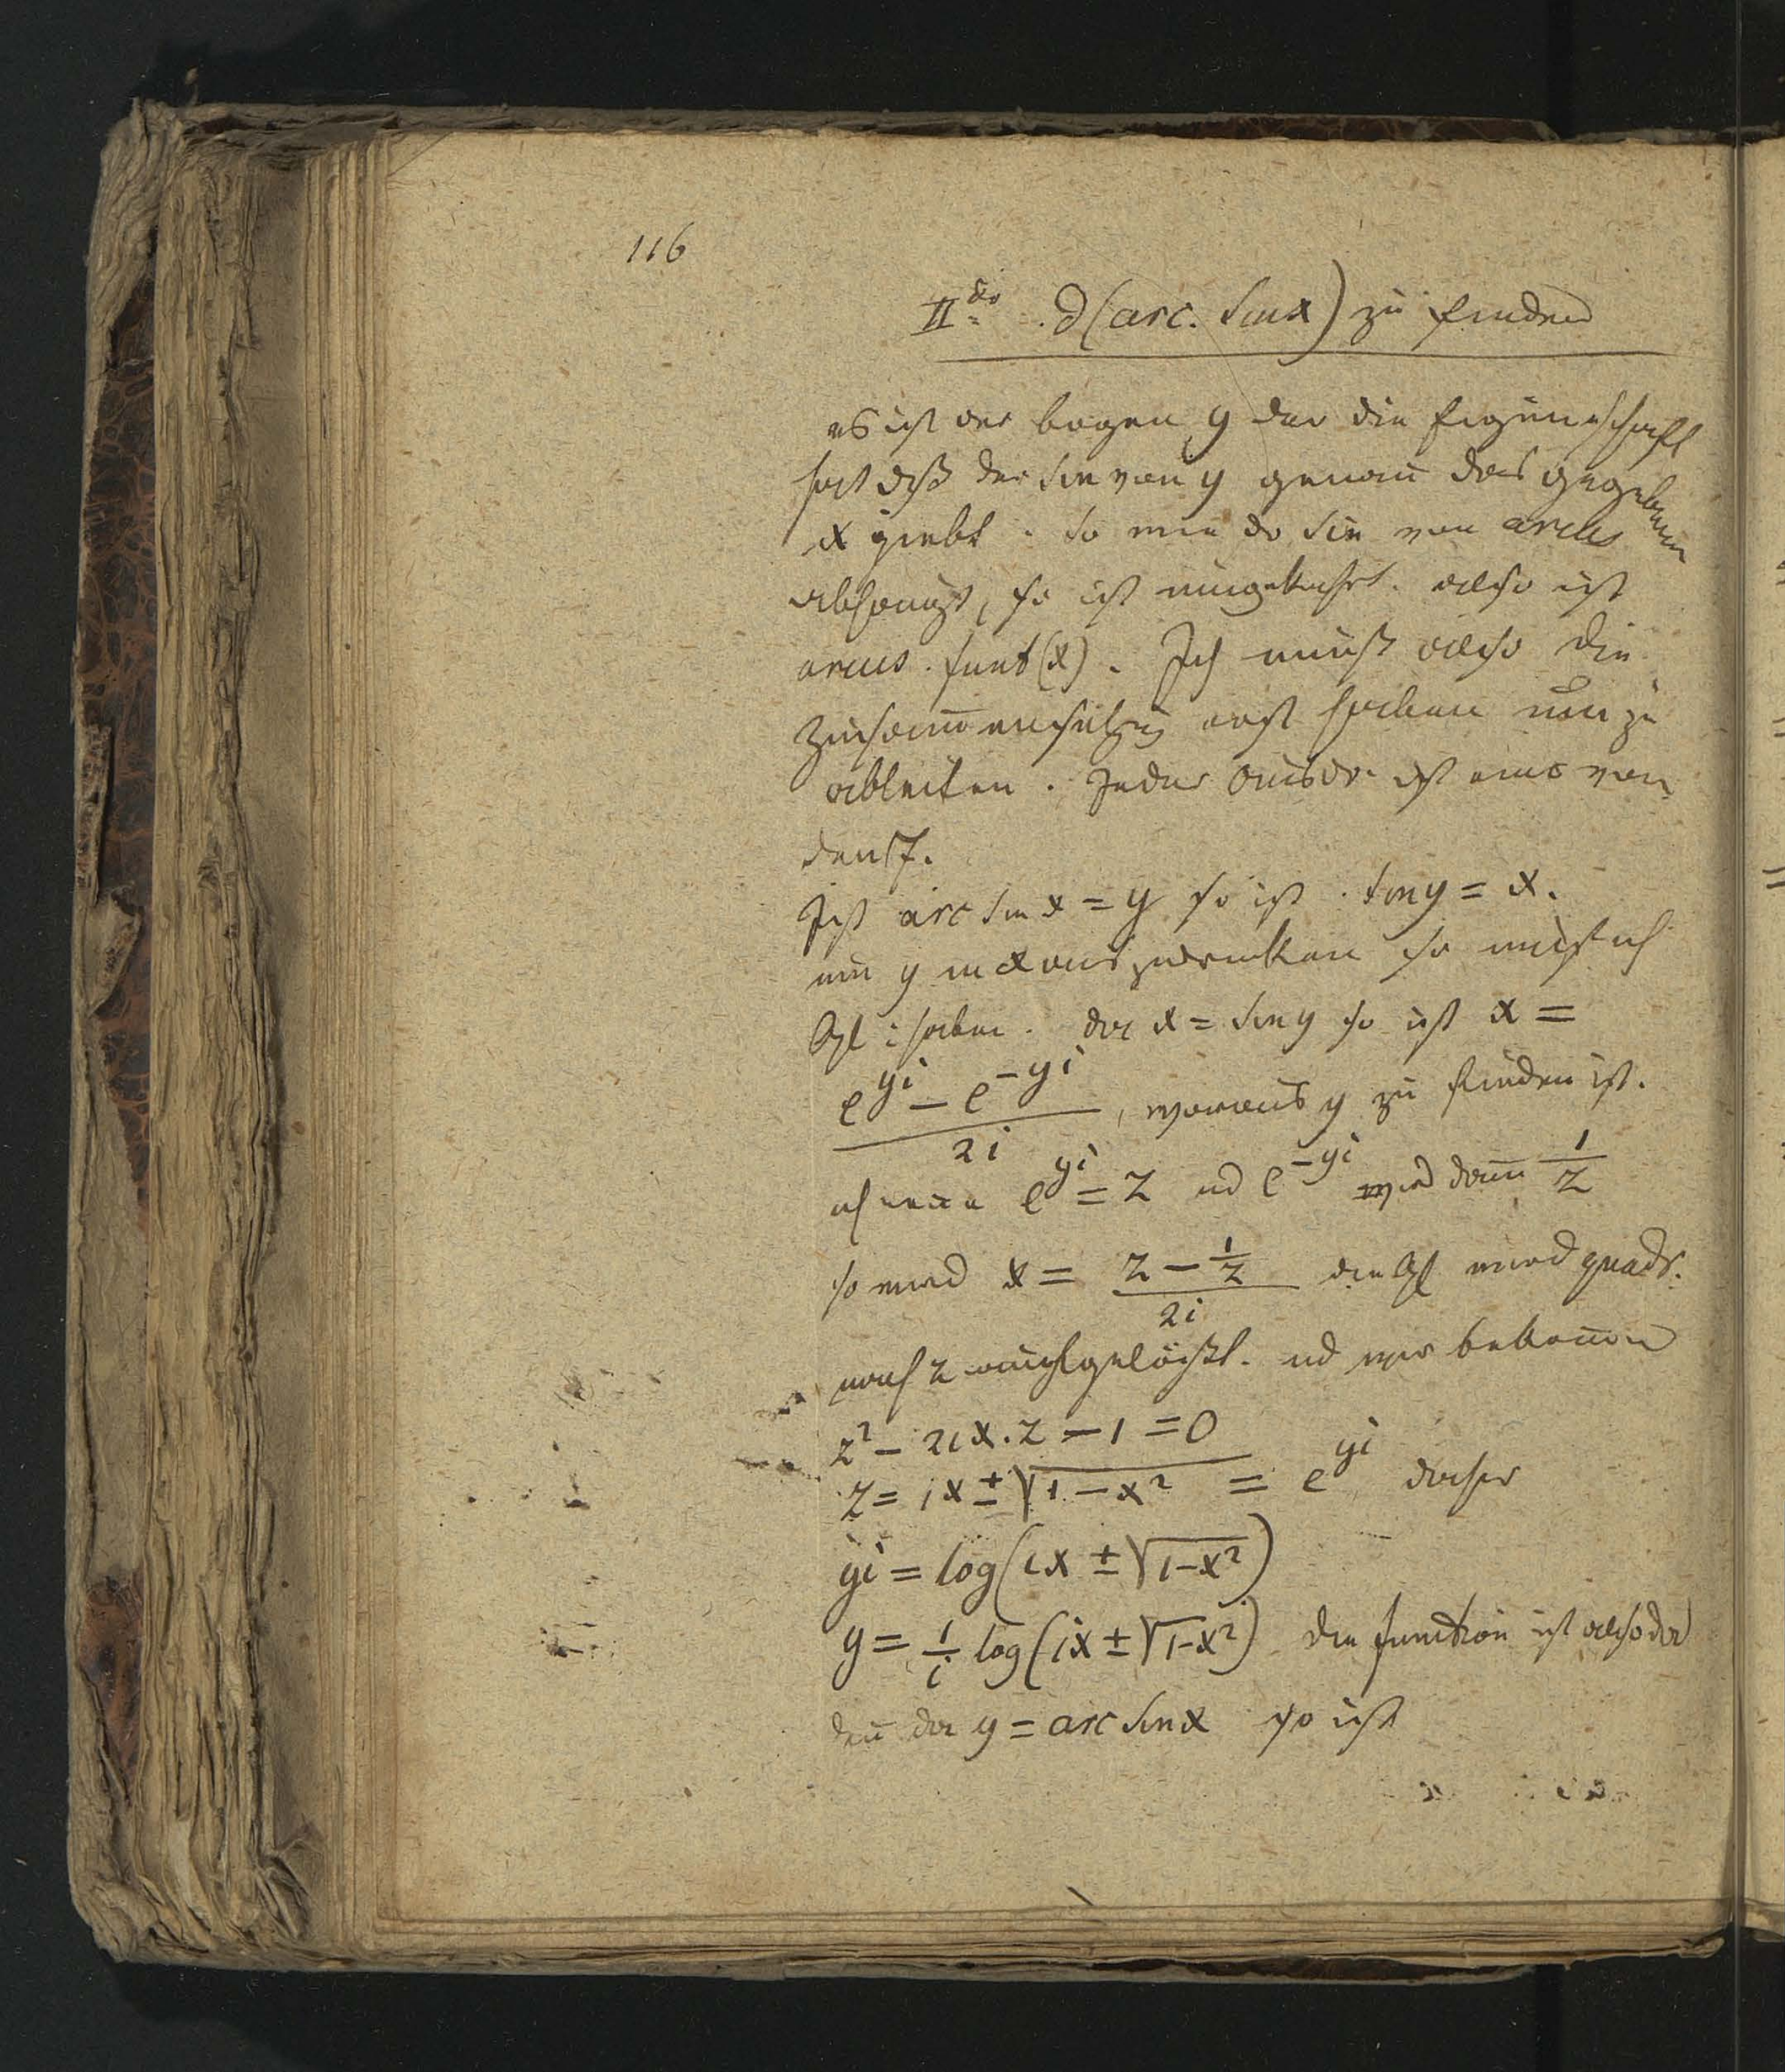 116
IIdo. d(arc. sin x) zu finden
es ist der bogen y der die Eigenschaft
hat daß der Sin von y genau das gegebene
x giebt. So wie der Sin von arcus
abhangt, so ist umgekehrt. also ist
arcus. funkt(x). Ich muß also die
Zusam̅ensetzug erst haben um zu
ableiten. Jeder ist eins von
den 7.
Ist arc sin x = y so ist. sin y = x.
um y in x auszudrucken so muß ich
Gl: haben. da x = sin y so ist x =
(e^{yi} − e^{−yi})/2i, woraus y zu finden ist.
ich nen̅e e^{yi} = z ud e^{−yi} wird dan̅ 1/z
so wird x = (z − 1/z)/2i die Gl wird quadr.
nach z aufgelößt. ud wir bekom̅en
z² − 2ix.z − 1 = 0
z = ix ± √(1 − x²) = e^{yi} daher
yi = log(ix ± √(1−x²))
y = 1/i log(ix ± √(1−x²)) die function ist also da
den̅ da y = arc sin x so ist